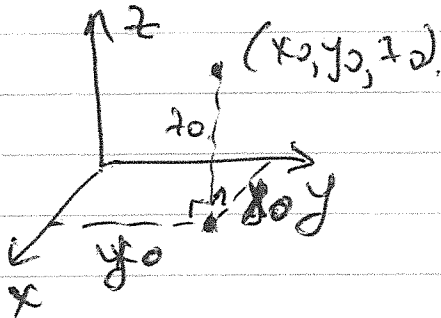 z
(x0, y0, z0).
z0
x0 y
y0
x